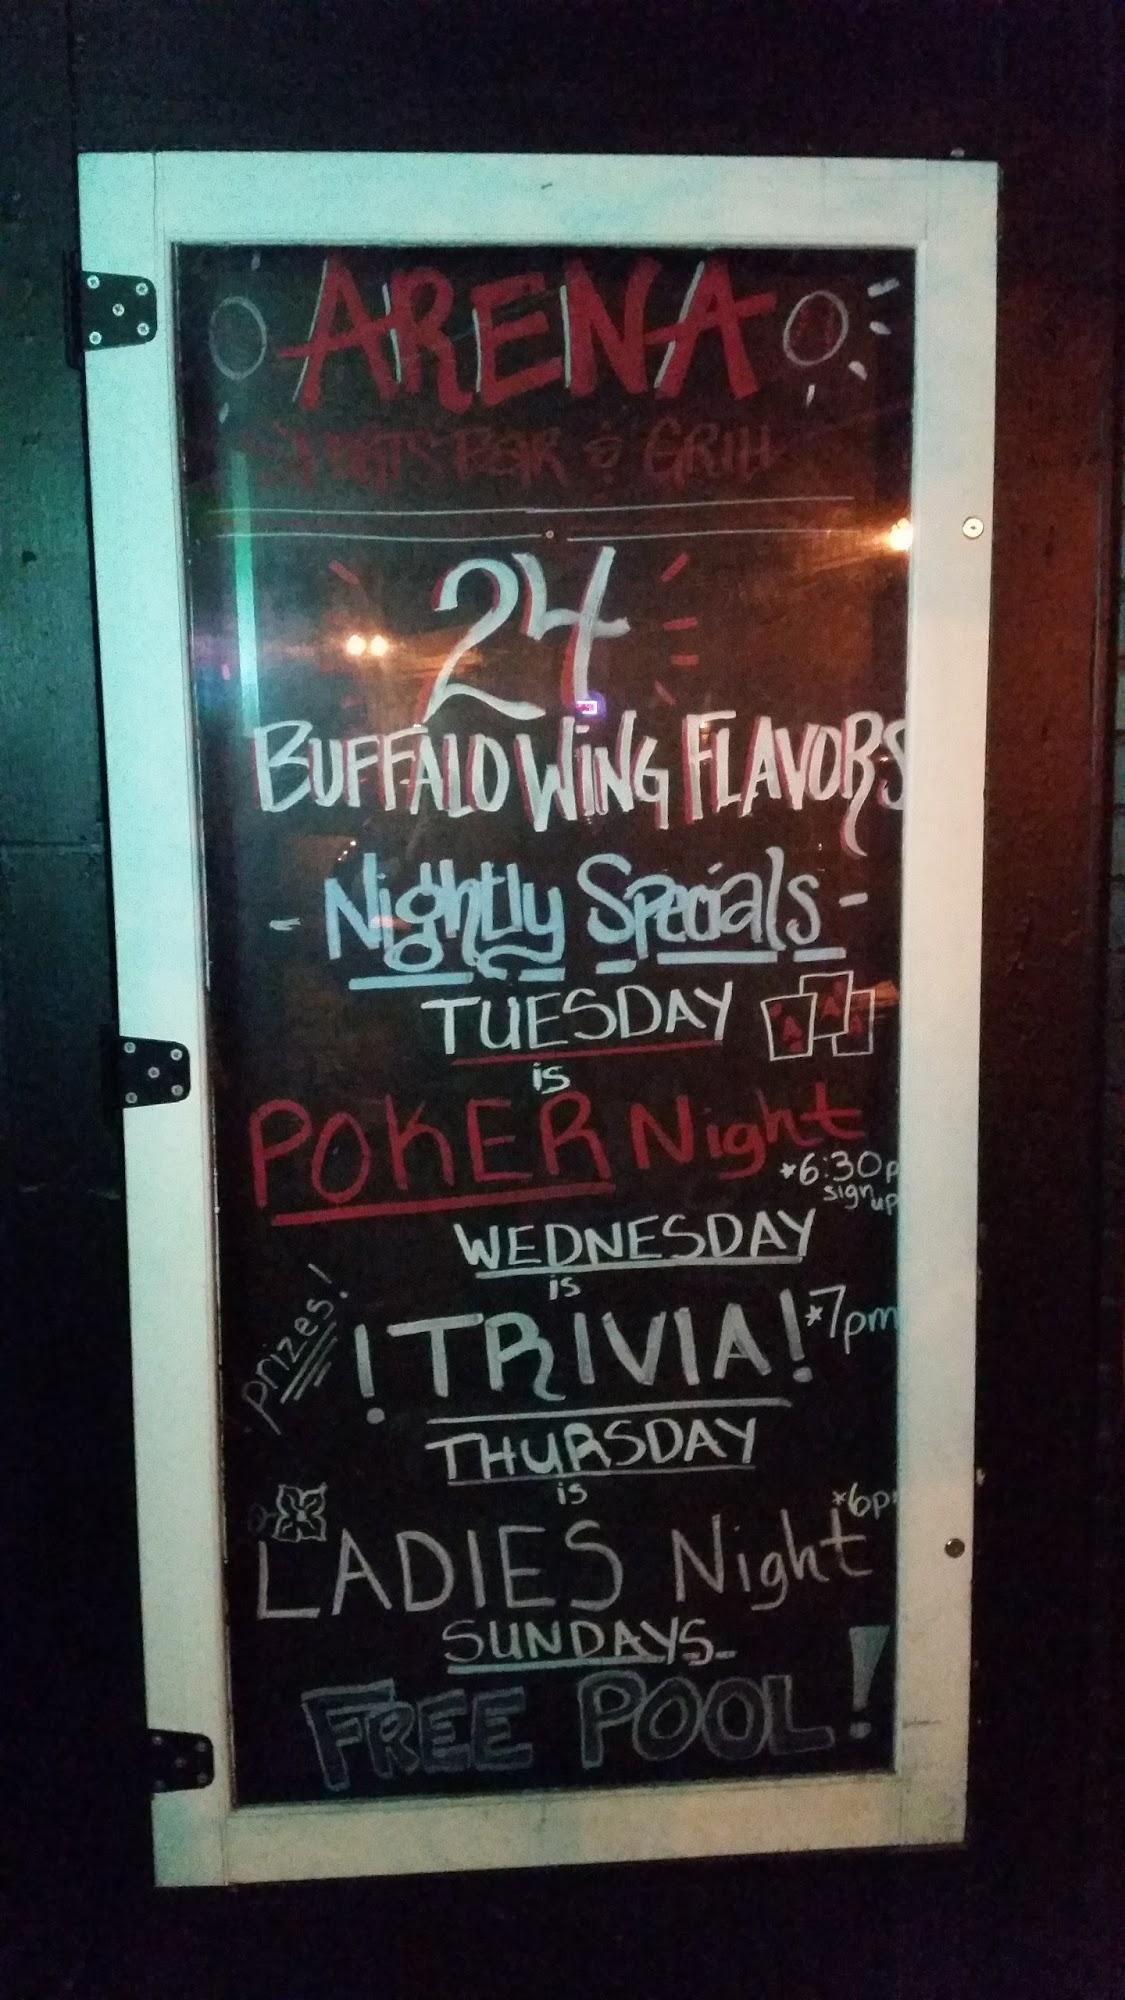 ARENA
SPORTS BAR & GRILL
24
BUFFALO WING FLAVORS
- Nightly Specials -
TUESDAY
A A A
is
POKER Night
*6:30p
sign up
WEDNESDAY
is
prizes!
! TRIVIA!
*7pm
THURSDAY
is
*6p
LADIES Night
SUNDAYS
FREE POOL!